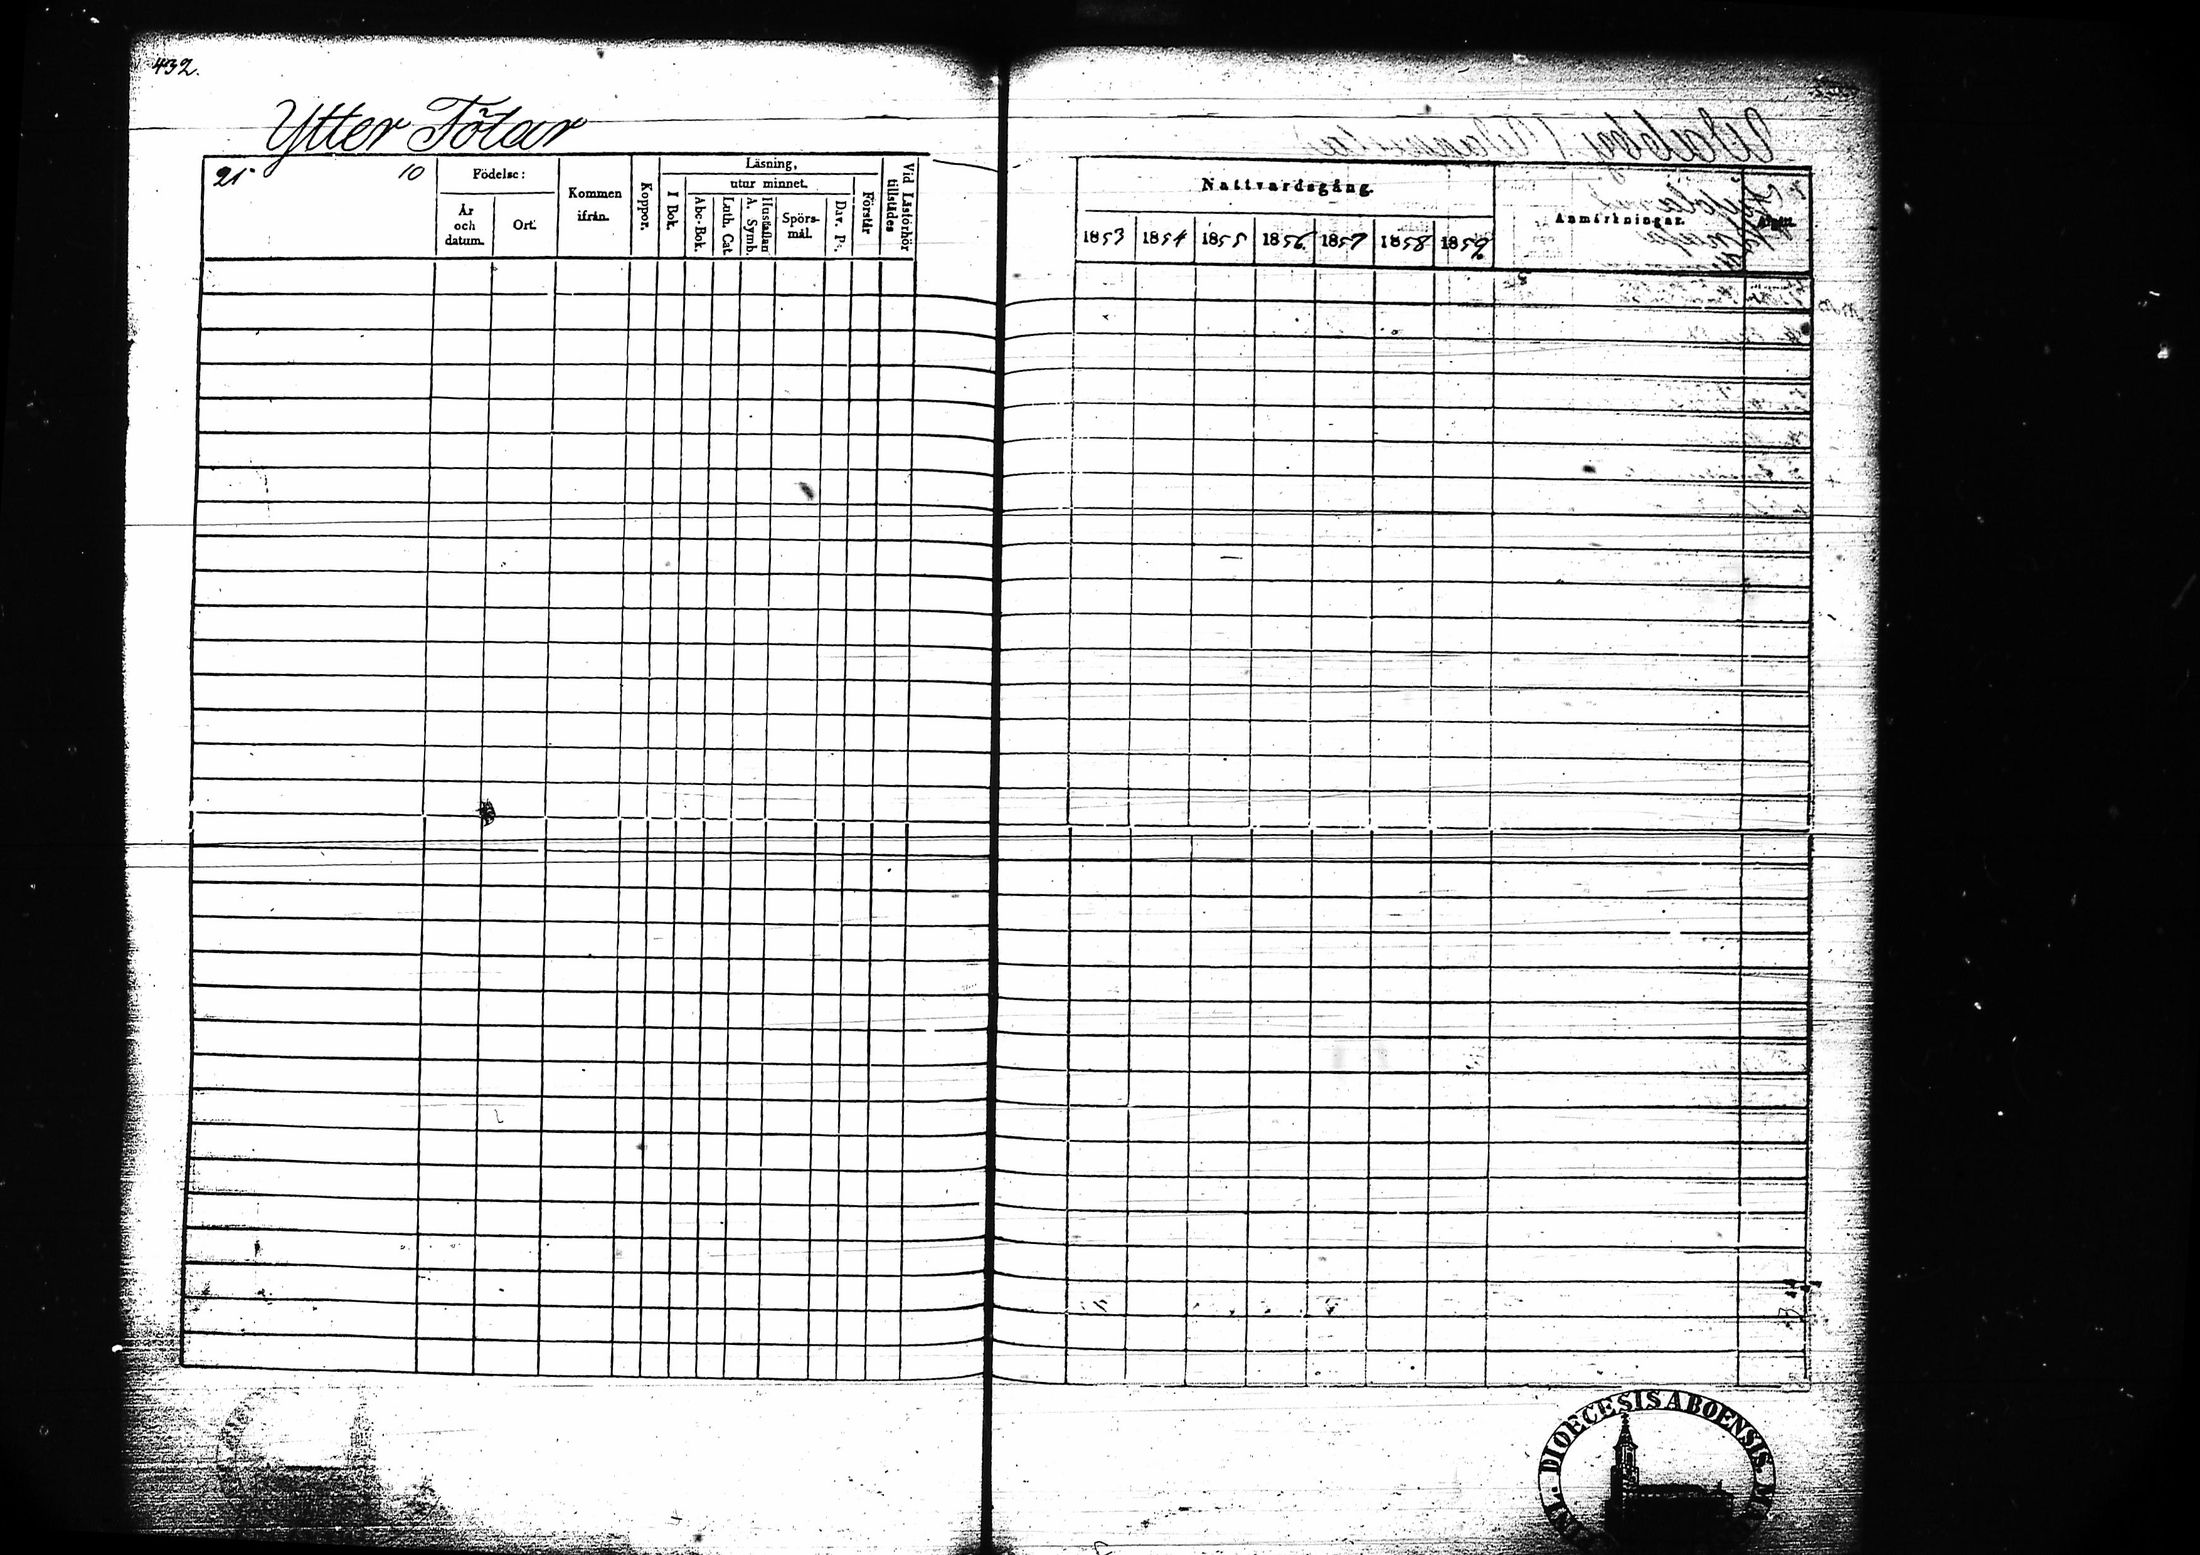 432.
Ytter Fölar
21 10
Födelse:
År
och
datum.
Ort.
Kommen
ifrån.
Koppor.
Läsning,
I Bok.
utur minnet.
Abc-Bok.
Luth. Cat.
Hustaflan
A. Symb.
Spörs-
mål.
Dav. Ps.
Förstår
Vid Läsförhör
tillstädes
Nattvardsgång.
1853 1854 1855 1856. 1857 1858 1859
Anmärkningar.
DIOECESIS ABOENSIS